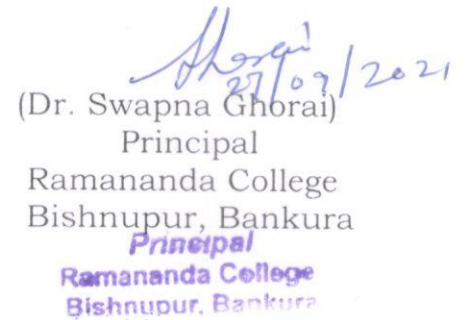 Ghorai
27/09/2021
(Dr. Swapna Ghorai)
Principal
Ramananda College
Bishnupur, Bankura
Principal
Ramananda College
Bishnupur, Bankura